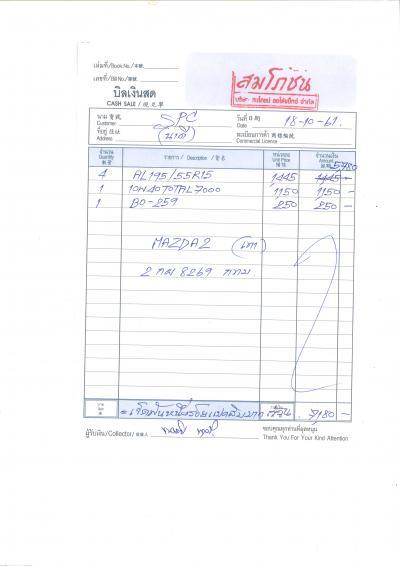 เล่มที่/Book No./本號
เลขที่/Bill No./本號
สมโภชน์
บริษัท สมโภชน์ ออโต้เซอร์วิส จำกัด
บิลเงินสด
CASH SALE / 現兌單
นาม 寶號 Customer SPC วันที่ 日期 Date 18-10-61.
ที่อยู่ 住址 Address ทะเบียนการค้า 商標編號 Commercial Licence
จำนวน Quantity 數量 รายการ / Description / 貨名 หน่วยละ Unit Price จำนวนเงิน Amount
5780
4 AL 195/55R15 1445 1445 -
1 10W40 TOTAL 7000 1150 1150 -
1 BO-259 250 250 -
MAZDA2 (เทา)
2 กม 8269 กทม.
บาท Baht รวมเงิน 7180 -
ผู้รับเงิน/Collector/收銀人
ขอบคุณทุกท่านที่อุดหนุน
Thank You For Your Kind Attention